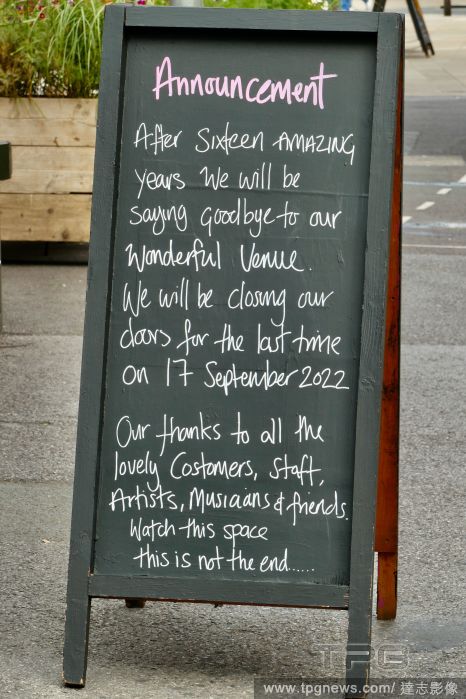 Announcement
After Sixteen AMAZING
years We will be
saying goodbye to our
Wonderful Venue.
We will be closing our
doors for the last time
on 17 September 2022
Our thanks to all the
lovely Costomers, Staff,
Artists, Musicians & friends.
Watch this space
this is not the end......
TPG
www.tpgnews.com/達志影像